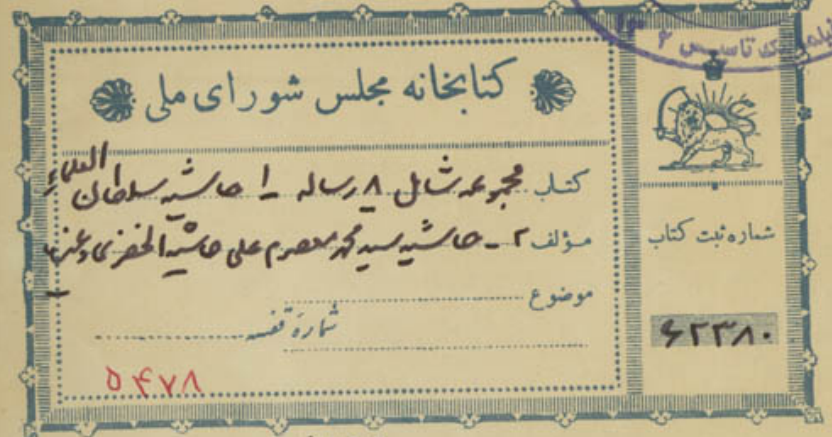 کتابخانه مجلس شورای ملی
کتاب مجموعه شامل ۸ رساله ۱ حاشیه سلطان العلماء
مؤلف ۲ - حاشیه سید محمد معصوم علی حاشیة الخفری وغیرها
موضوع
شمارهٔ قفسه
۵۴۷۸
شماره ثبت کتاب
۶۲۳۸۰
تاسیس ۱۳۰۲